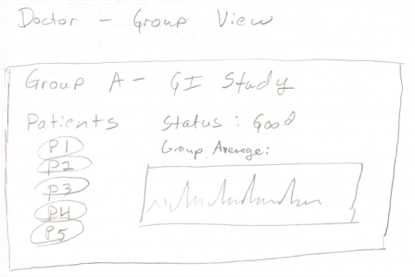 Doctor - Group View
Group A - GI Study
Patients
Status : Good
P1
Group Average:
P2
P3
P4
P5